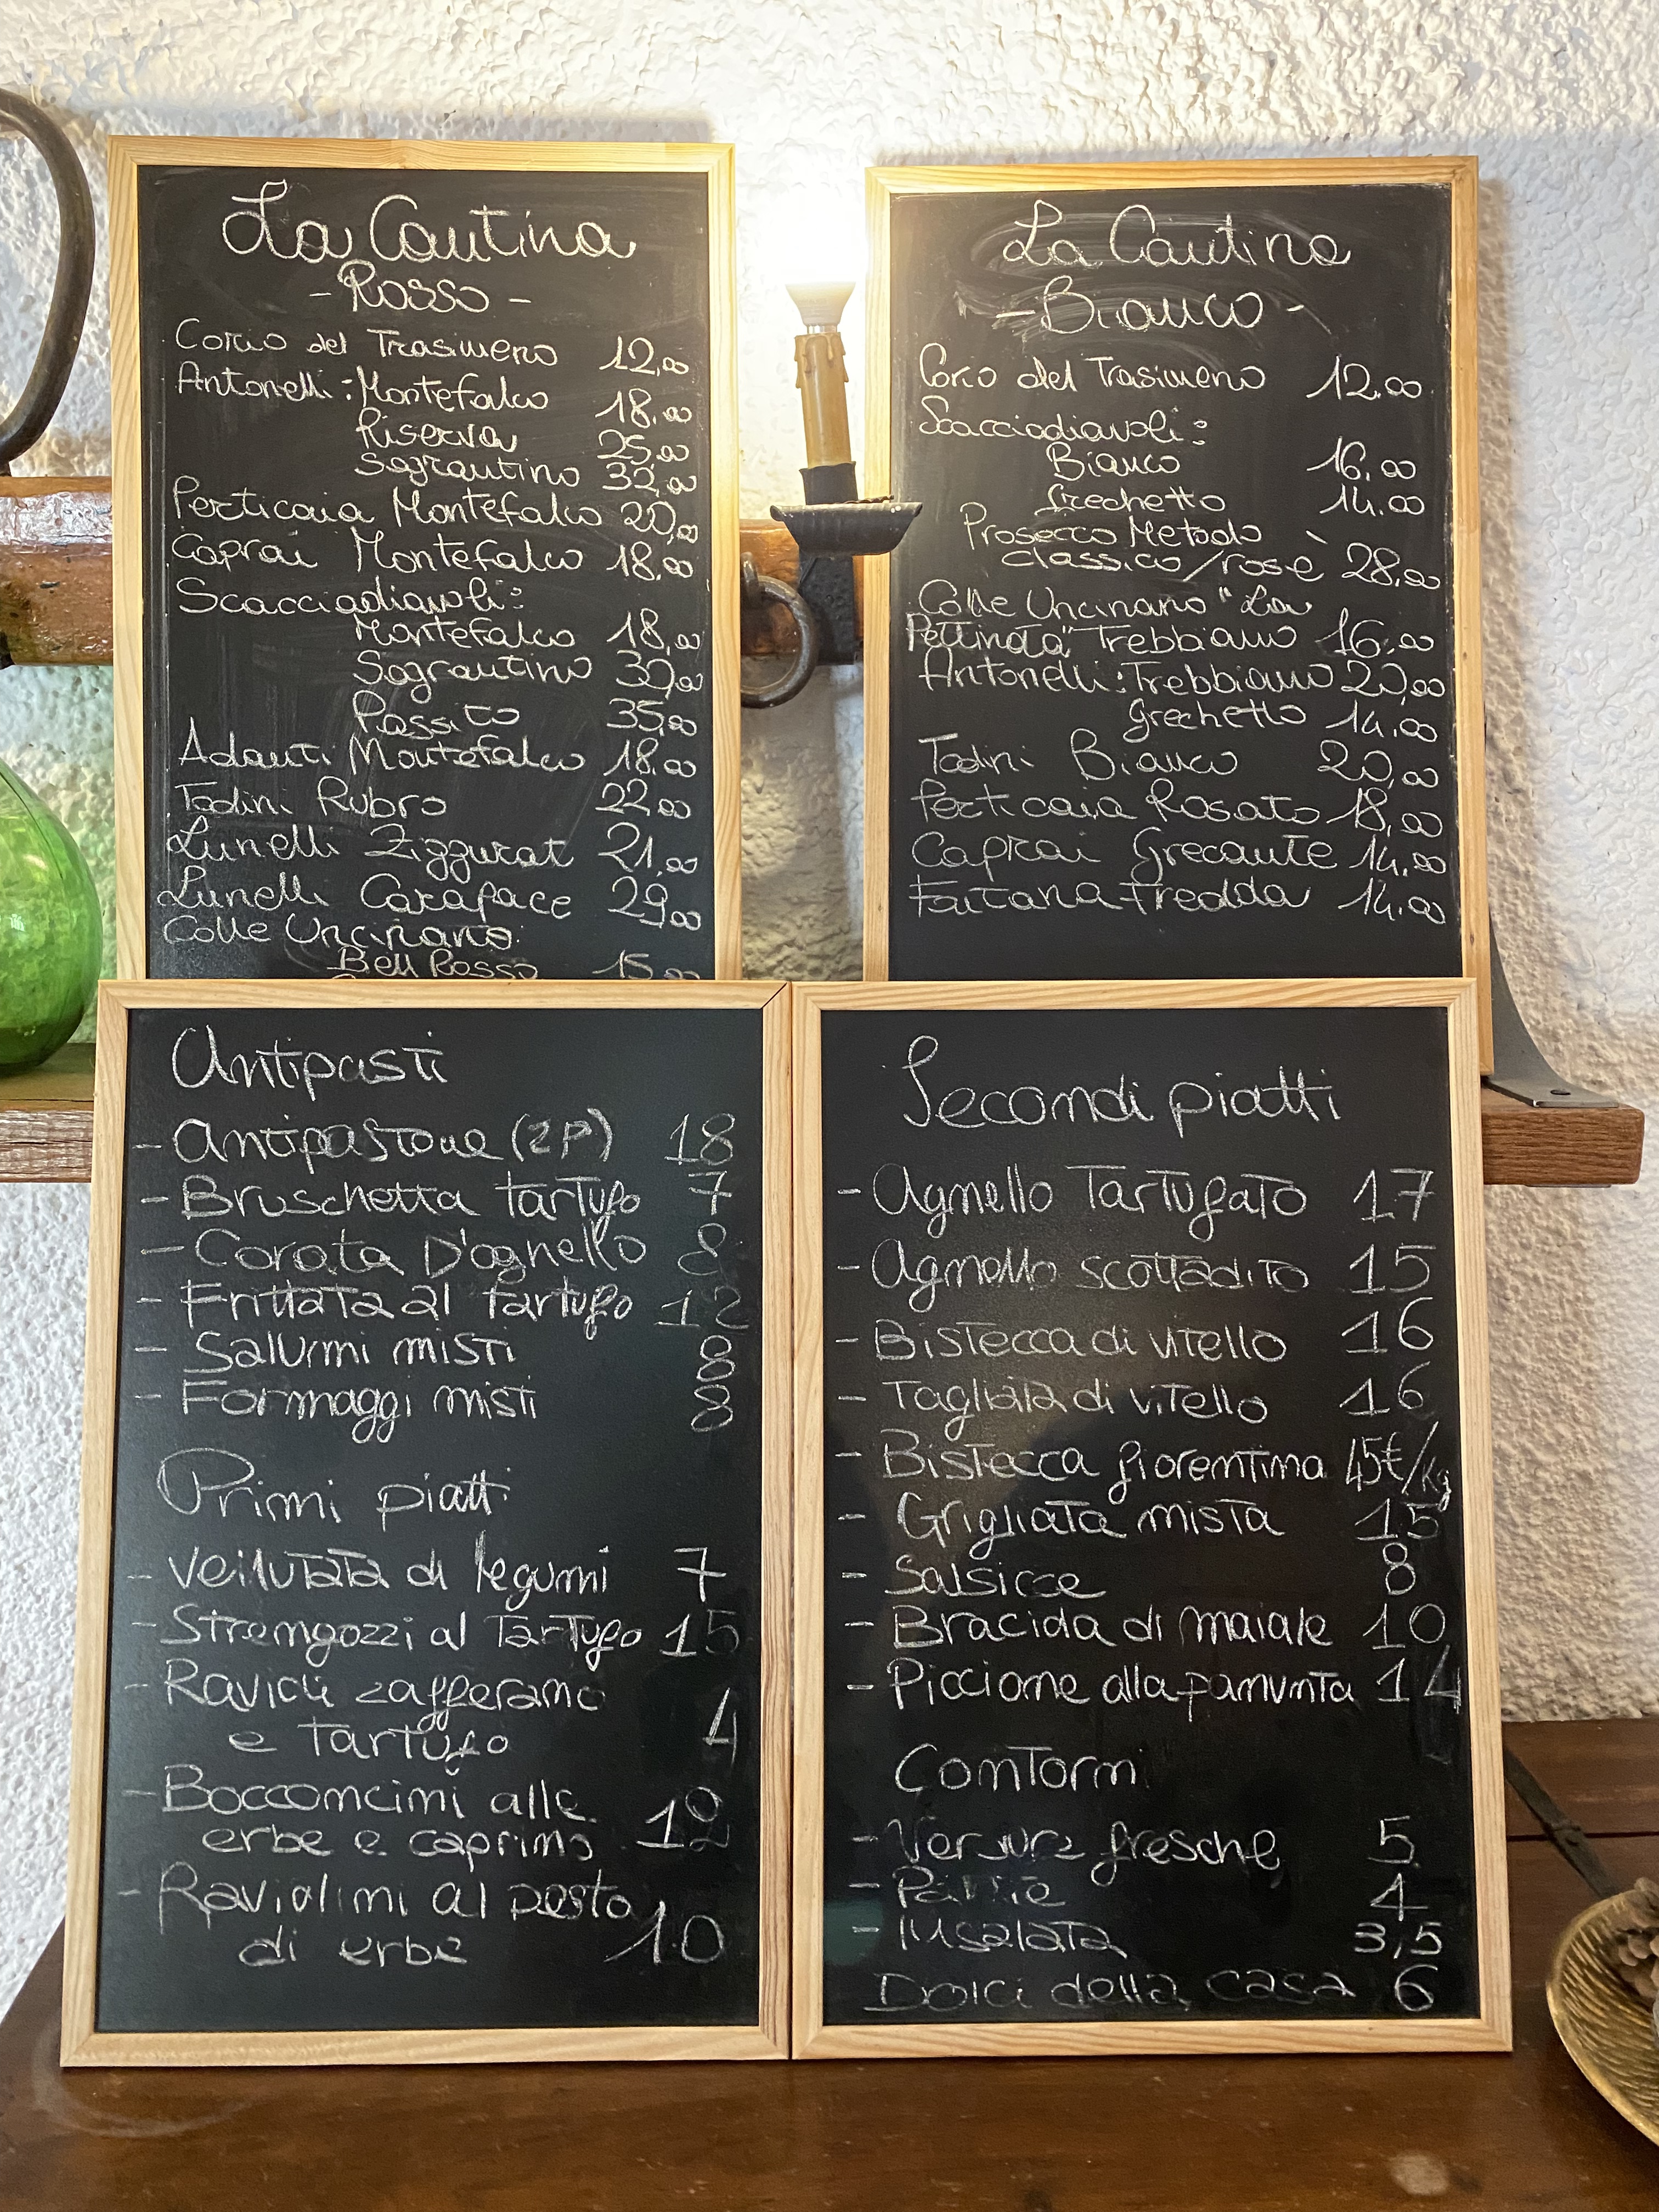 La Cantina
- Rosso -
Corio del Trasimeno 12,00
Antonelli: Montefalco 18,00
Riserva 25,00
Sagrantino 32,00
Perticaia Montefalco 20,00
Caprai Montefalco 18,00
Scacciadiavoli:
Montefalco 18,00
Sagrantino 30,00
Passito 35,00
Adanti Montefalco 18,00
Todini Rubro 22,00
Lunelli Ziggurat 21,00
Lunelli Carapace 29,00
Colle Uncinano:
Bell Rosso 15,00
La Cantina
- Bianco -
Corio del Trasimeno 12,00
Scacciadiavoli:
Bianco 16,00
Grechetto 14,00
Prosecco Metodo
classico/rosè 28,00
Colle Uncinano "La
Pettinata" Trebbiano 16,00
Antonelli: Trebbiano 20,00
Grechetto 14,00
Todini Bianco 20,00
Perticaia Rosato 18,00
Caprai Grecante 14,00
Fontana Fredda 14,00
Antipasti
- Antipastone (2P) 18
- Bruschetta tartufo 7
- Corata D'agnello 8
- Frittata al tartufo 12
- Salumi misti 8
- Formaggi misti 8
Primi piatti
- Vellutata di legumi 7
- Strengozzi al Tartufo 15
- Ravioli zafferano
e tartufo
- Bocconcini alle
erbe e caprino
- Raviolini al pesto
di erbe 10
Secondi piatti
- Agnello Tartufato 17
- Agnello scottadito 15
- Bistecca di vitello 16
- Tagliata di vitello 16
- Bistecca fiorentina 45€/kg
- Grigliata mista 15
- Salsicce 8
- Braciola di maiale 10
- Piccione alla panunta 14
Contorni
- Verdure fresche 5
- Patate 4
- Insalata 3,5
Dolci della casa 6